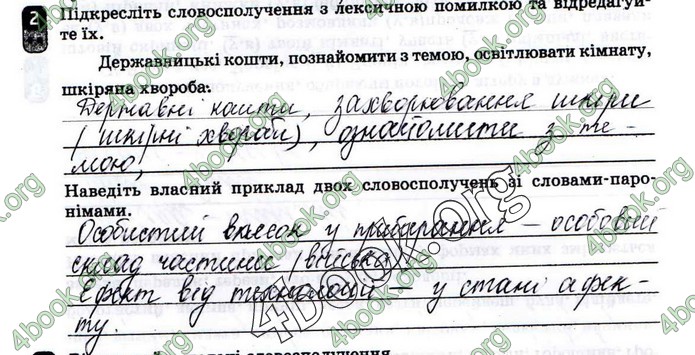 2 Підкресліть словосполучення з лексичною помилкою та відредагуй-
те їх.
Державницькі кошти, познайомити з темою, освітлювати кімнату,
шкіряна хвороба.
Державні кошти, захворювання шкіри
(шкірні хвороби), ознайомити з те-
мою,
Наведіть власний приклад двох словосполучень зі словами-паро-
німами.
Особистий внесок у прибирання – особовий
склад частини, війська.
Ефект від технології – у стані афек-
ту.
словосполучення
4book.org